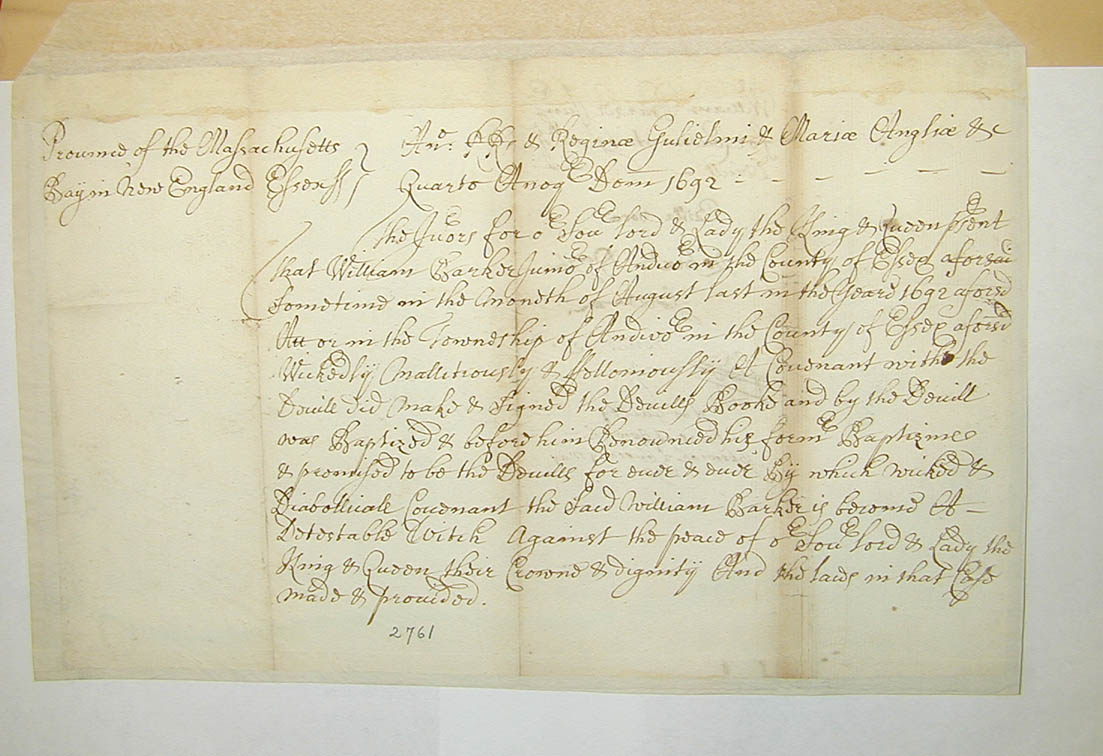 Province of the Massachusetts
Bay in New England Essex ss
An°: RRs & Reginæ Gulielmi & Mariæ Angliæ &c
Quarto Anoq Dom 1692 - - - - - -
The Juors for oE Sou lord & Lady the King & Queen psent
that William Barker Junior of Andivor in the County of Essex aforsaid
Sometime in the Moneth of August last in the Yeare 1692 aforsd
Att or in the Towneship of Andivor in the County of Essex aforsd
Wickedly Mallitiously & ffelloniously A Covenant with the
Devill did Make & Signed the Devills Booke and by the Devill
was Baptized & before him Renownced his formE Baptizme
& promised to be the Devills for ever & ever By which wicked &
Diabollicall Covenant the Said William Barker is become A -
Detestable Witch Against the peace of oE Sou lord & Lady the
King & Queen their Crowne & dignity And the laws in that Case
made & provided.
2761